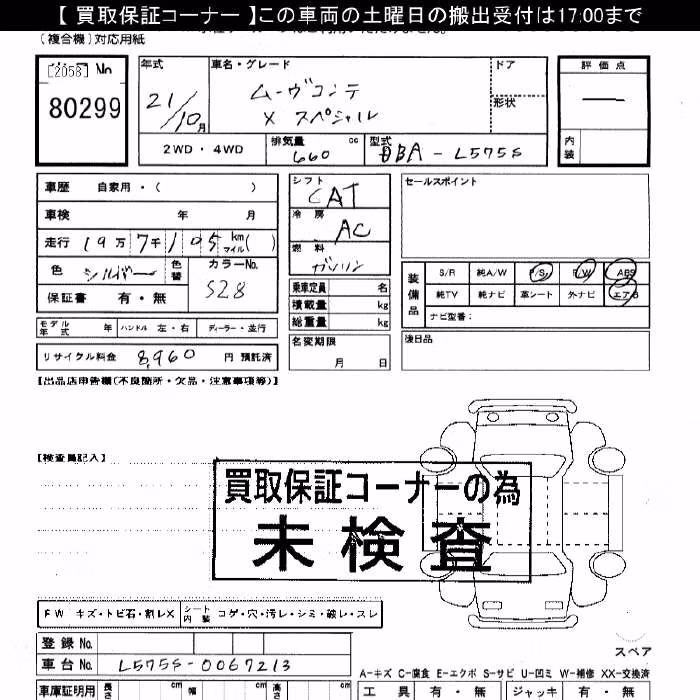 【 買取保証コーナー 】この車両の土曜日の搬出受付は17:00まで
(複合機)対応用紙
[2058] No
80299
年式
21/10月
車名・グレード
ムーヴコンテ
X スペシャル
ドア
形状
評価点
内装
2WD・4WD
排気量
660 cc
型式
DBA-L575S
車歴 自家用・( )
車検 年 月
走行 19万7千105 km マイル( )
色 シルバー 色替
カラーNo.
S28
保証書 有・無
シフト
CAT
冷房
AC
燃料
ガソリン
乗車定員 名
積載量 kg
総重量 kg
セールスポイント
装備品
S/R 純A/W P/S P/W ABS
純TV 純ナビ 革シート 外ナビ エアB
ナビ型番:
モデル年式 年 ハンドル 左・右 ディーラー・並行
リサイクル料金 8,960 円 預託済
名変期限
月 日
後日品
【出品店申告欄(不良箇所・欠品・注意事項等)】
【検査員記入】
買取保証コーナーの為
未検査
FW キズ・トビ石・割レX シート内装 コゲ・穴・汚レ・シミ・破レ・スレ
登録No.
車台No. L575S-0067213
スペア
A-キズ C-腐食 E-エクボ S-サビ U-凹ミ W-補修 XX-交換済
車庫証明用 長さ cm 幅 cm 高さ cm
工具 有・無 ジャッキ 有・無